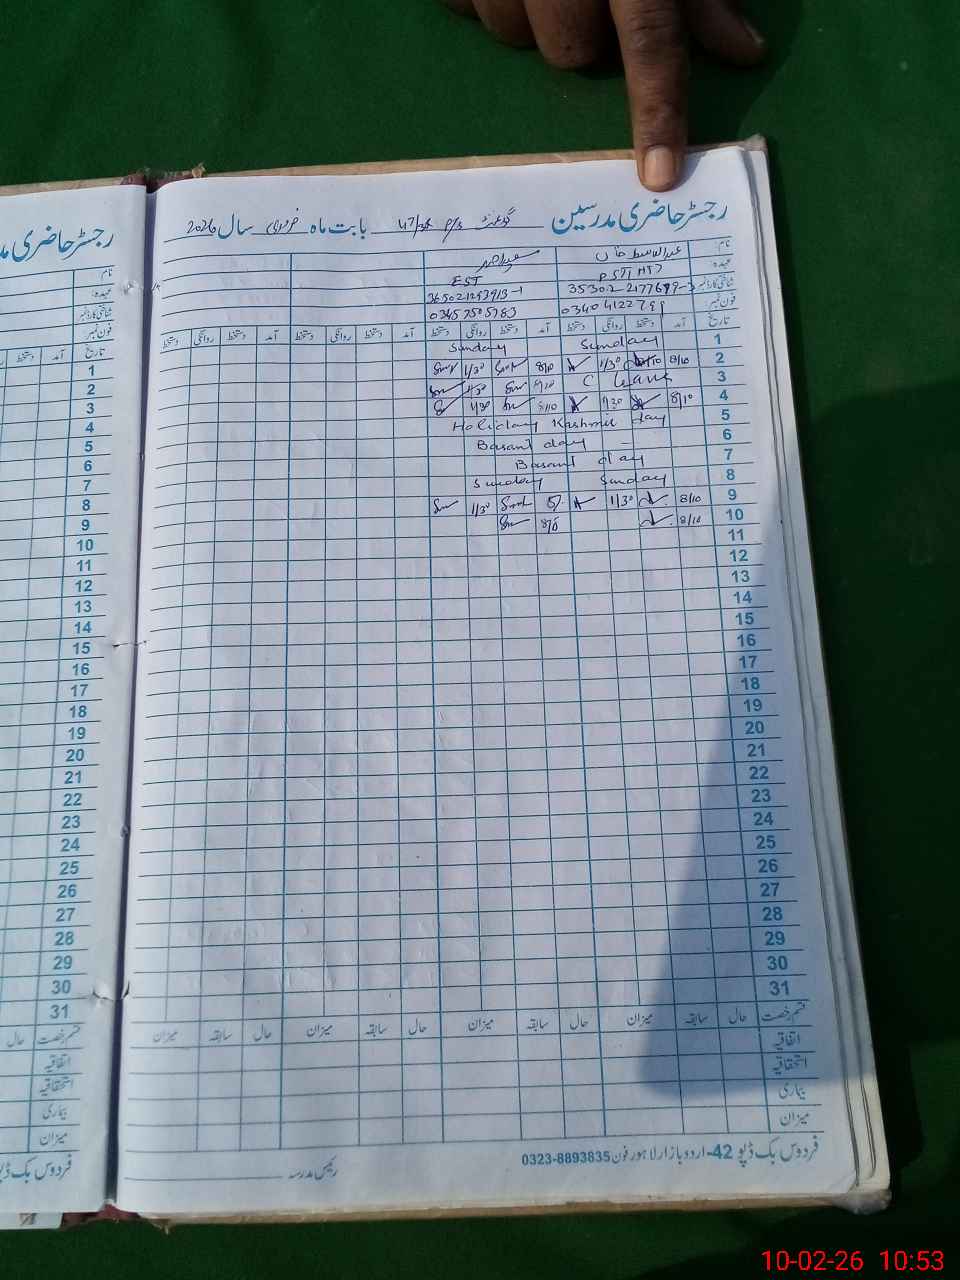 رجسٹر حاضری مدرسین گورنمنٹ P/S 47/3R بابت ماہ فروری سال 2026
نام عبدالباسط خاں
عہدہ: PST/HT EST
شناختی کارڈ نمبر 35302-2177699-3
فون نمبر: 03404122799 03457505783
تاریخ آمد دستخط روانگی دستخط آمد دستخط روانگی دستخط آمد دستخط روانگی دستخط آمد دستخط روانگی دستخط
1 Sunday Sunday
2 8/10 1/30 8/10 1/30
3 C leave 8/10 1/30
4 8/10 1/30 8/10 1/30
5 Holiday Kashmir day
6 Basant day
7 Basant day
8 Sunday Sunday
9 8/10 1/30 1/30
10 8/10
11
12
13
14
15
16
17
18
19
20
21
22
23
24
25
26
27
28
29
30
31
قسم رخصت حال سابقہ میزان حال سابقہ میزان حال سابقہ میزان حال سابقہ میزان
اتفاقیہ
استحقاقیہ
بیماری
میزان
فردوس بک ڈپو 42-اردو بازار لاہور فون 0323-8893835
رئیس مدرسہ
رجسٹر حاضری مد
نام
عہدہ:
شناختی کارڈ نمبر
فون نمبر:
تاریخ آمد دستخط
1
2
3
4
5
6
7
8
9
10
11
12
13
14
15
16
17
18
19
20
21
22
23
24
25
26
27
28
29
30
31
قسم رخصت حال
اتفاقیہ
استحقاقیہ
بیماری
میزان
فردوس بک ڈپو
10-02-26 10:53